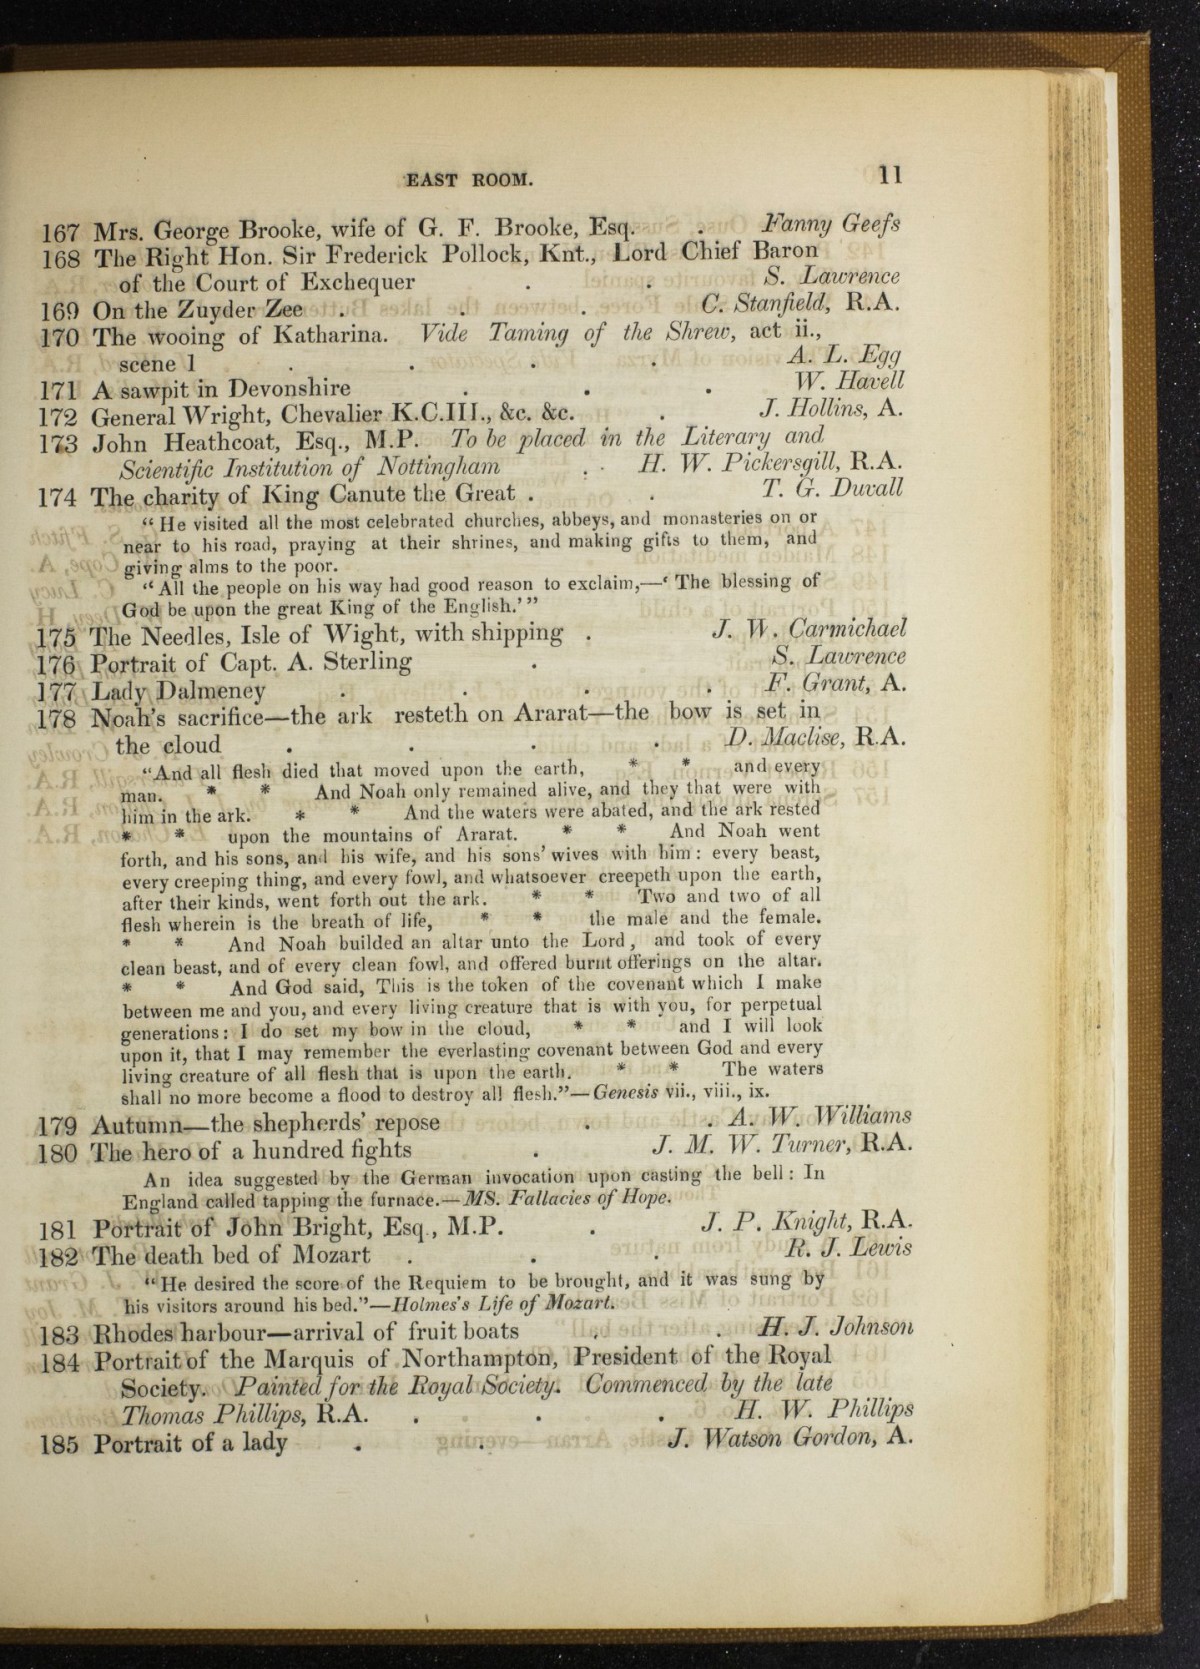 EAST ROOM. 11
167 Mrs. George Brooke, wife of G. F. Brooke, Esq. . Fanny Geefs
168 The Right Hon. Sir Frederick Pollock, Knt., Lord Chief Baron
of the Court of Exchequer . . S. Lawrence
169 On the Zuyder Zee . . . C. Stanfield, R.A.
170 The wooing of Katharina. Vide Taming of the Shrew, act ii.,
scene 1 . . . . A. L. Egg
171 A sawpit in Devonshire . . . W. Havell
172 General Wright, Chevalier K.C.III., &c. &c. . J. Hollins, A.
173 John Heathcoat, Esq., M.P. To be placed in the Literary and
Scientific Institution of Nottingham . . H. W. Pickersgill, R.A.
174 The charity of King Canute the Great . . T. G. Duvall
“He visited all the most celebrated churches, abbeys, and monasteries on or
near to his road, praying at their shrines, and making gifts to them, and
giving alms to the poor.
“All the people on his way had good reason to exclaim,—‘The blessing of
God be upon the great King of the English.’”
175 The Needles, Isle of Wight, with shipping . J. W. Carmichael
176 Portrait of Capt. A. Sterling . S. Lawrence
177 Lady Dalmeney . . . . F. Grant, A.
178 Noah’s sacrifice—the ark resteth on Ararat—the bow is set in
the cloud . . . . D. Maclise, R.A.
“And all flesh died that moved upon the earth, * * and every
man. * * And Noah only remained alive, and they that were with
him in the ark. * * And the waters were abated, and the ark rested
* * upon the mountains of Ararat. * * And Noah went
forth, and his sons, and his wife, and his sons’ wives with him: every beast,
every creeping thing, and every fowl, and whatsoever creepeth upon the earth,
after their kinds, went forth out the ark. * * Two and two of all
flesh wherein is the breath of life, * * the male and the female.
* * And Noah builded an altar unto the Lord, and took of every
clean beast, and of every clean fowl, and offered burnt offerings on the altar.
* * And God said, This is the token of the covenant which I make
between me and you, and every living creature that is with you, for perpetual
generations: I do set my bow in the cloud, * * and I will look
upon it, that I may remember the everlasting covenant between God and every
living creature of all flesh that is upon the earth. * * The waters
shall no more become a flood to destroy all flesh.”—Genesis vii., viii., ix.
179 Autumn—the shepherds’ repose . . A. W. Williams
180 The hero of a hundred fights . J. M. W. Turner, R.A.
An idea suggested by the German invocation upon casting the bell: In
England called tapping the furnace.—MS. Fallacies of Hope.
181 Portrait of John Bright, Esq., M.P. . J. P. Knight, R.A.
182 The death bed of Mozart . . . R. J. Lewis
“He desired the score of the Requiem to be brought, and it was sung by
his visitors around his bed.”—Holmes’s Life of Mozart.
183 Rhodes harbour—arrival of fruit boats . . H. J. Johnson
184 Portrait of the Marquis of Northampton, President of the Royal
Society. Painted for the Royal Society. Commenced by the late
Thomas Phillips, R.A. . . . H. W. Phillips
185 Portrait of a lady . . J. Watson Gordon, A.